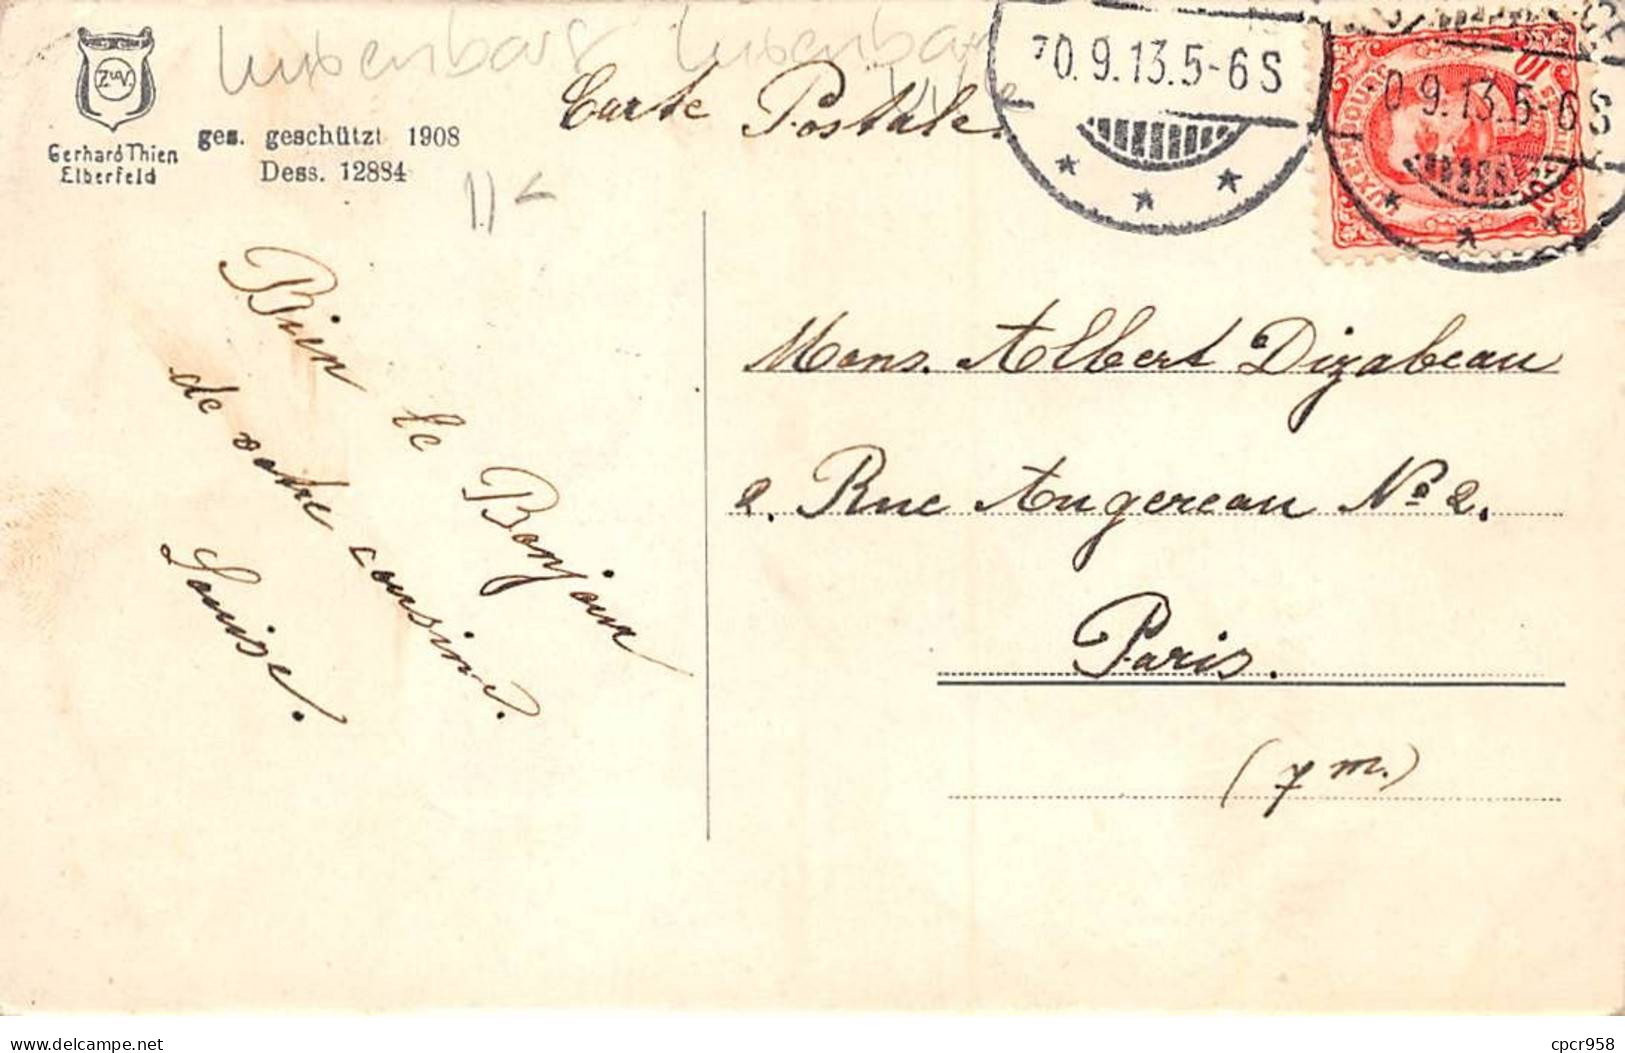 Luxenbourg
Z u V.
Gerhard Thien
Elberfeld
ges. geschützt 1908
Dess. 12884
Carte Postale.
0.9.13.5-6S
0.9.13.5-6S
10
10
Bien le Bonjour
de votre cousine.
Louise.
Mons. Albert Dizabeau
2. Rue Augereau No 2.
Paris.
(7 m.)
www.delcampe.net
cpcr958